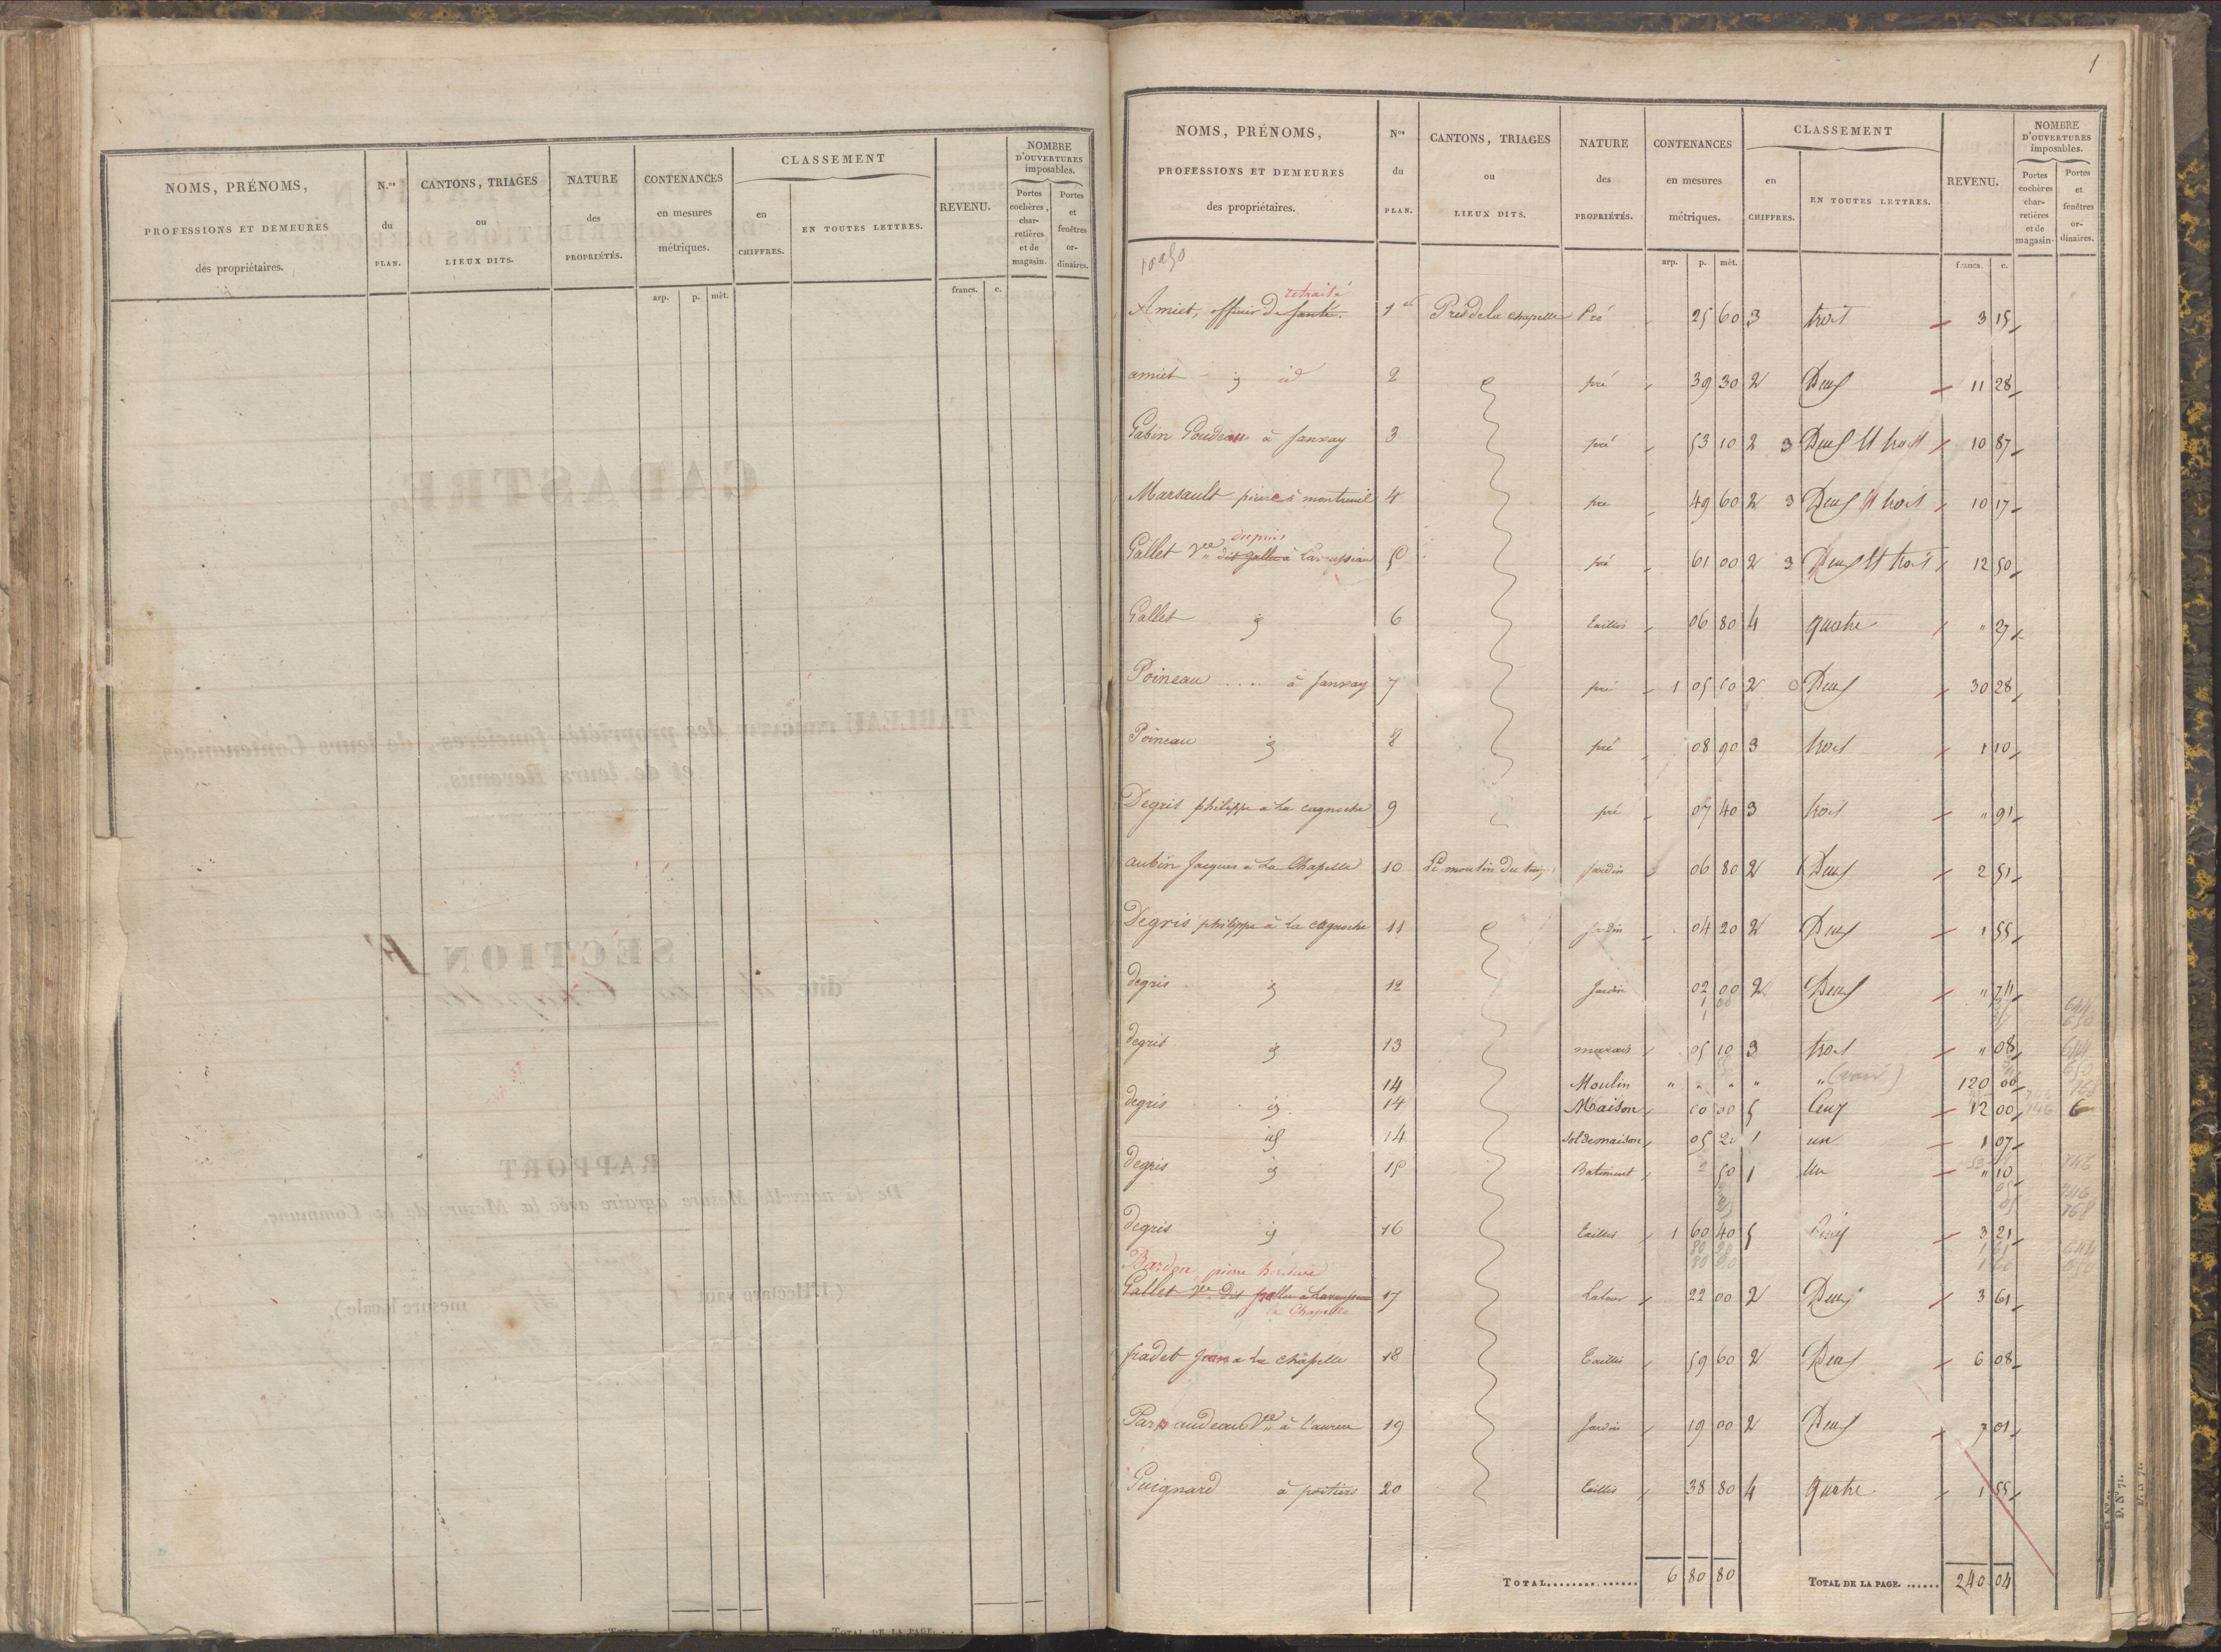 NOMS, PRÉNOMS, PROFESSIONS ET DEMEURES des propriétaires.
N.os du PLAN.
CANTONS, TRIAGES ou LIEUX DITS.
NATURE des PROPRIÉTÉS.
CONTENANCES en mesures métriques.
arp. p. mèt.
CLASSEMENT
en CHIFFRES.
EN TOUTES LETTRES.
REVENU.
francs. c.
NOMBRE D'OUVERTURES imposables.
Portes cochères, charretières et de magasin.
Portes et fenêtres ordinaires.
TOTAL DE LA PAGE
1
NOMS, PRÉNOMS, PROFESSIONS ET DEMEURES des propriétaires.
Nos du PLAN.
CANTONS, TRIAGES ou LIEUX DITS.
NATURE des PROPRIÉTÉS.
CONTENANCES en mesures métriques.
arp. p. mèt.
CLASSEMENT
en CHIFFRES.
EN TOUTES LETTRES.
REVENU.
francs. c.
NOMBRE D'OUVERTURES imposables.
Portes cochères charretières et de magasin.
Portes et fenêtres ordinaires.
retraité
Amiet, officier de santé. 1er Prés de la chapelle Pré 25 60 3 trois 3 15
amiet id 2 pré 39 30 2 Deux 11 28
à Sanxay 3 pré 53 10 2 3 Deux et trois 10 87
Marsault pierre à montreuil 4 pré 49 60 2 3 Deux et trois 10 17
Gallet Vee dit 5 pré 61 00 2 3 Deux et trois 12 50
Gallet id 6 taillis 06 80 4 quatre " 27
Poineau .... à Sanxay 7 pré 1 05 50 2 Deux 30 28
Poineau id 8 pré 08 90 3 trois 1 10
Degris philippe a la cagnoche 9 pré 07 40 3 trois " 91
aubin Jacques à La Chapelle 10 Le moulin du jardin 06 80 2 Deux 2 51
Degris philippe à la cagnoche 11 jardin 04 20 2 Deux 1 55
degris id 12 Jardin 02 00 2 Deux " 74
degris id 13 marais 05 10 3 trois " 08
14 Moulin " " " " " 120 00
degris id 14 Maison 00 00 5 Cinq 12 00 6
id 14 sol de maison 05 20 1 un 1 07
Degris id 15 Batiment 50 1 Un " 10
Degris id 16 taillis 1 60 40 5 Cinq 3 21
Bardon pierre
Gallet Vee dit 17 labour 22 00 2 Deux 3 61
la Chapelle
fradet Jean a La chapelle 18 Taillis 59 60 2 Deux 6 08
Vee à 19 Jardin 19 00 2 Deux 7 01
Guignard à poitiers 20 taillis 38 80 4 quatre 1 55
TOTAL 6 80 80
TOTAL DE LA PAGE 240 04